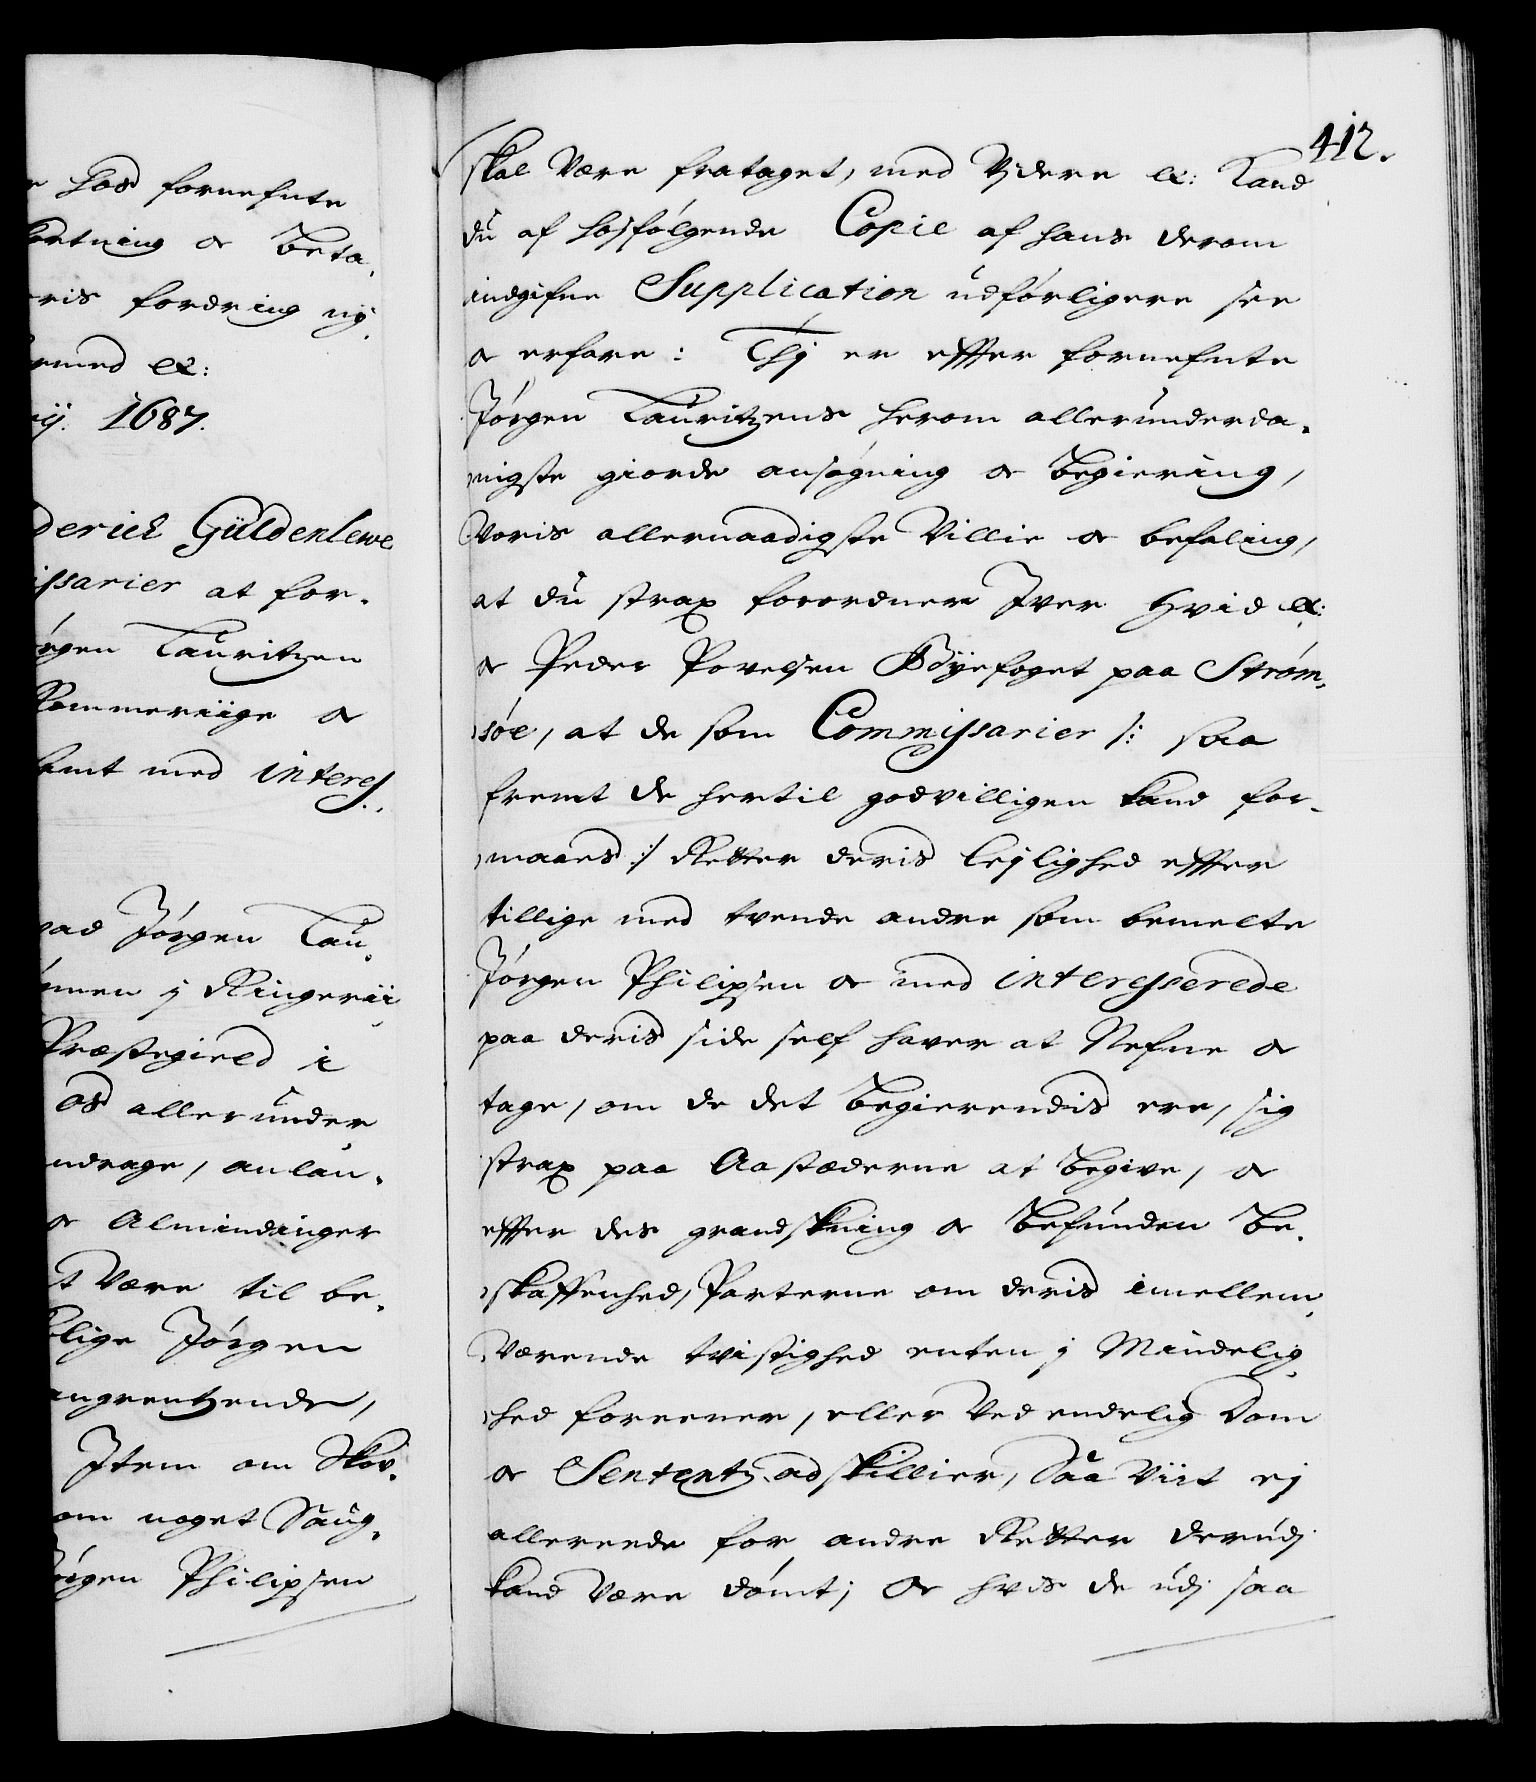 e hos fornefnte
kortning oc beta-
oris fordring nÿ-
ermed etc:
ij. 1687.
derich Güldenlewe
issarier at for-
ørgen Lauritzen
Rommeriige oc
samt med interes-
vad Jørgen Lau-
ømen j Ringerii-
Præstegield i
os allerunder-
ndrage, anlan-
oc Almindinger
t være til be-
lige Jørgen
angrentzende,
Item om Skov-
om noget Saug-
ørgen Philipsen
412.
skal være frataget, med videre etc: Kand
du af hosfølgende Copie af hans derom
indgifne Supplication udførligere see
oc erfare: Thj er effter fornefnte
Jørgen Lauritzens herom allerunderda-
nigste giorde ansøgning oc begiering,
Voris allernaadigste Villie oc befaling,
at du strax forordner Iver Hvid etc:
oc Peder Povelsen Bÿefoget paa Strøm-
søe, at de som Commissarier /: saa
fremt de hertil godvilligen kand for-
maaes :/ Retter deris lejlighed effter
tillige med tvende andre som bemelte
Jørgen Philipsen oc med interesserede
paa deris side self haver at Nefne oc
tage, om de det begierendis ere, sig
strax paa Aastæderne at begive, oc
effter des grandskning oc befunden be-
skaffenhed, Parterne om deris imellem-
værende tvistighed enten j Mindelig-
hed foreener, eller ved endelig Dom
oc Sententz adskillier, Saa viit ej
allereede for andre Retter derudj
kand være dømt; oc hvis de udj saa